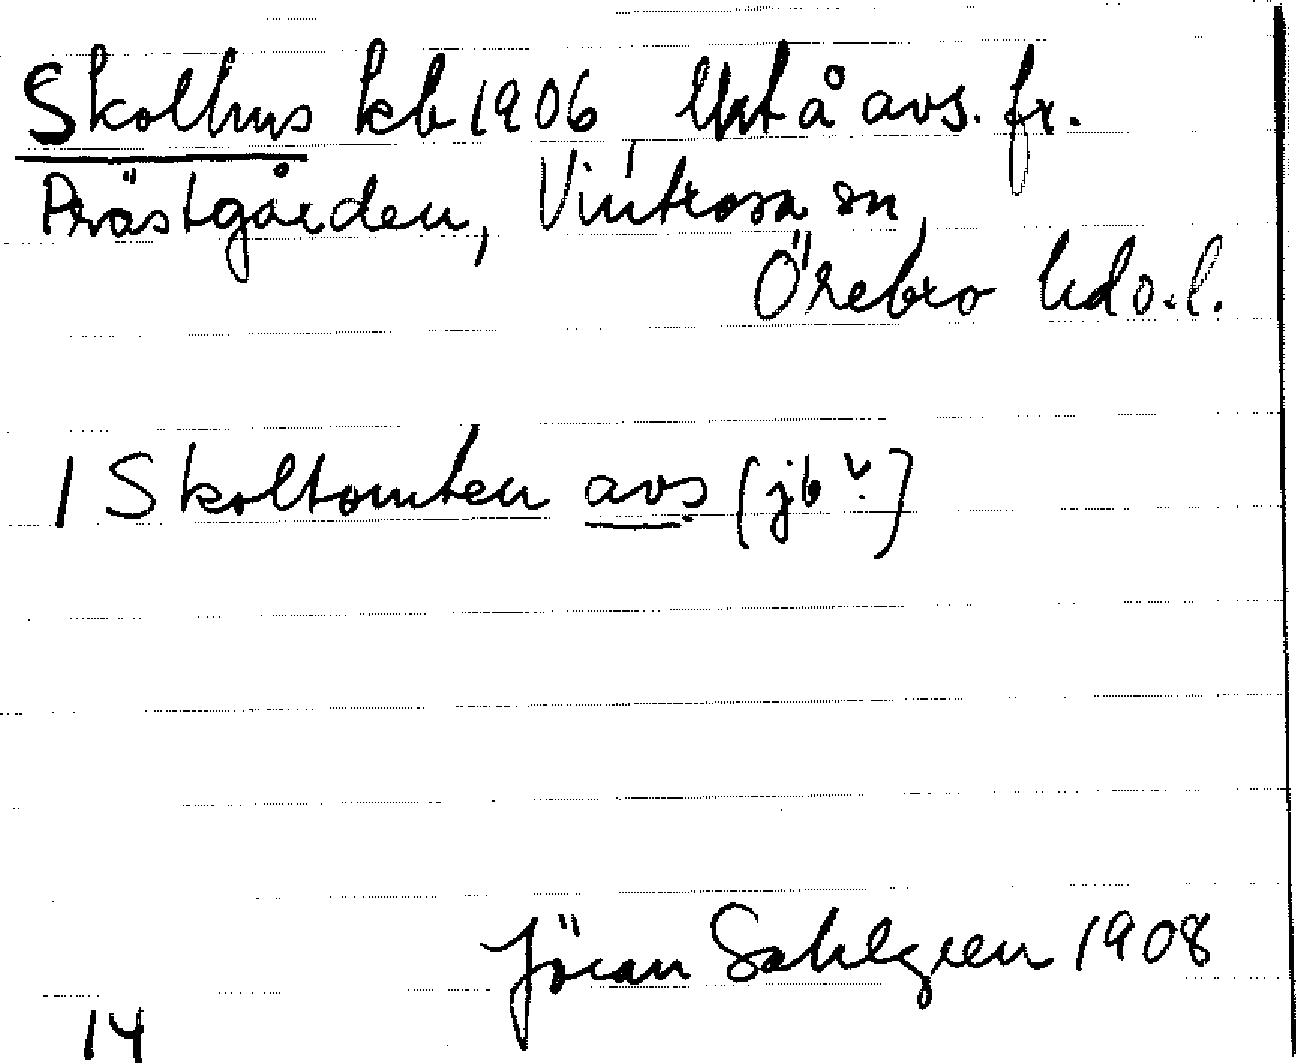 Skolhus kb 1906 Uht å avs. fr.
Prästgården, Vintrosa sn,
Örebro hd o. l.
1 Skoltomten avs (jb v.)
Jöran Sahlgren 1908
14